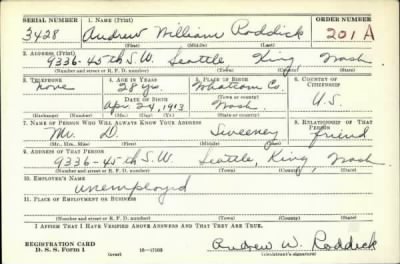 SERIAL NUMBER 1. NAME (Print) ORDER NUMBER
3428 Andrew William Roddick 201 A
(First) (Middle) (Last)
2. ADDRESS (Print)
9336-45th S.W. Seattle King Wash
(Number and street or R. F. D. number) (Town) (County) (State)
3. TELEPHONE 4. AGE IN YEARS 5. PLACE OF BIRTH 6. COUNTRY OF CITIZENSHIP
none 28 yrs. Whatcom Co.
DATE OF BIRTH (Town or county)
Apr. 24, 1913 Wash. U.S
(Exchange) (Number) (Mo.) (Day) (Yr.) (State or country)
7. NAME OF PERSON WHO WILL ALWAYS KNOW YOUR ADDRESS 8. RELATIONSHIP OF THAT PERSON
Mr. D. Sweeney friend
(Mr., Mrs., Miss) (First) (Middle) (Last)
9. ADDRESS OF THAT PERSON
9336-45th S.W. Seattle, King, Wash.
(Number and street or R. F. D. number) (Town) (County) (State)
10. EMPLOYER'S NAME
unemployed
11. PLACE OF EMPLOYMENT OR BUSINESS
(Number and street or R. F. D. number) (Town) (County) (State)
I AFFIRM THAT I HAVE VERIFIED ABOVE ANSWERS AND THAT THEY ARE TRUE.
REGISTRATION CARD
D. S. S. Form 1 (over) Andrew W. Roddick
(Registrant's signature)